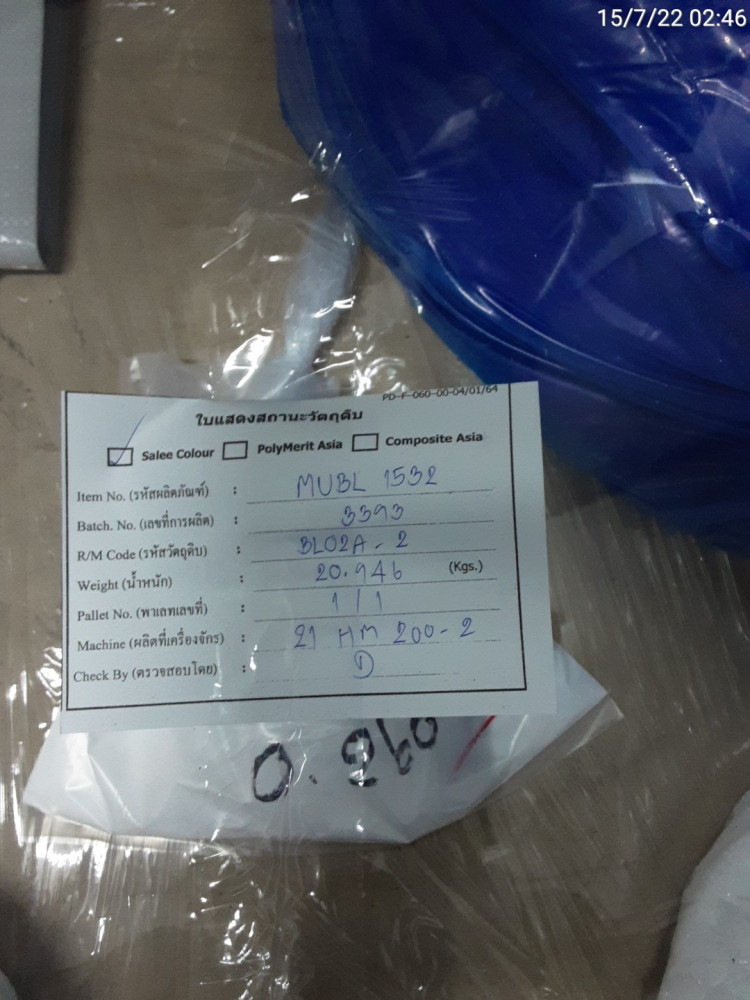 15/7/22 02:46
PD-F-060-00-04/01/64
ใบแสดงสถานะวัตถุดิบ
Salee Colour PolyMerit Asia Composite Asia
Item No. (รหัสผลิตภัณฑ์) : MUBL 1532
Batch. No. (เลขที่การผลิต) : 3393
R/M Code (รหัสวัตถุดิบ) : BL02A - 2
Weight (น้ำหนัก) : 20.946 (Kgs.)
Pallet No. (พาเลทเลขที่) : 1 / 1
Machine (ผลิตที่เครื่องจักร) : 21 HM 200-2
Check By (ตรวจสอบโดย) :
0.260